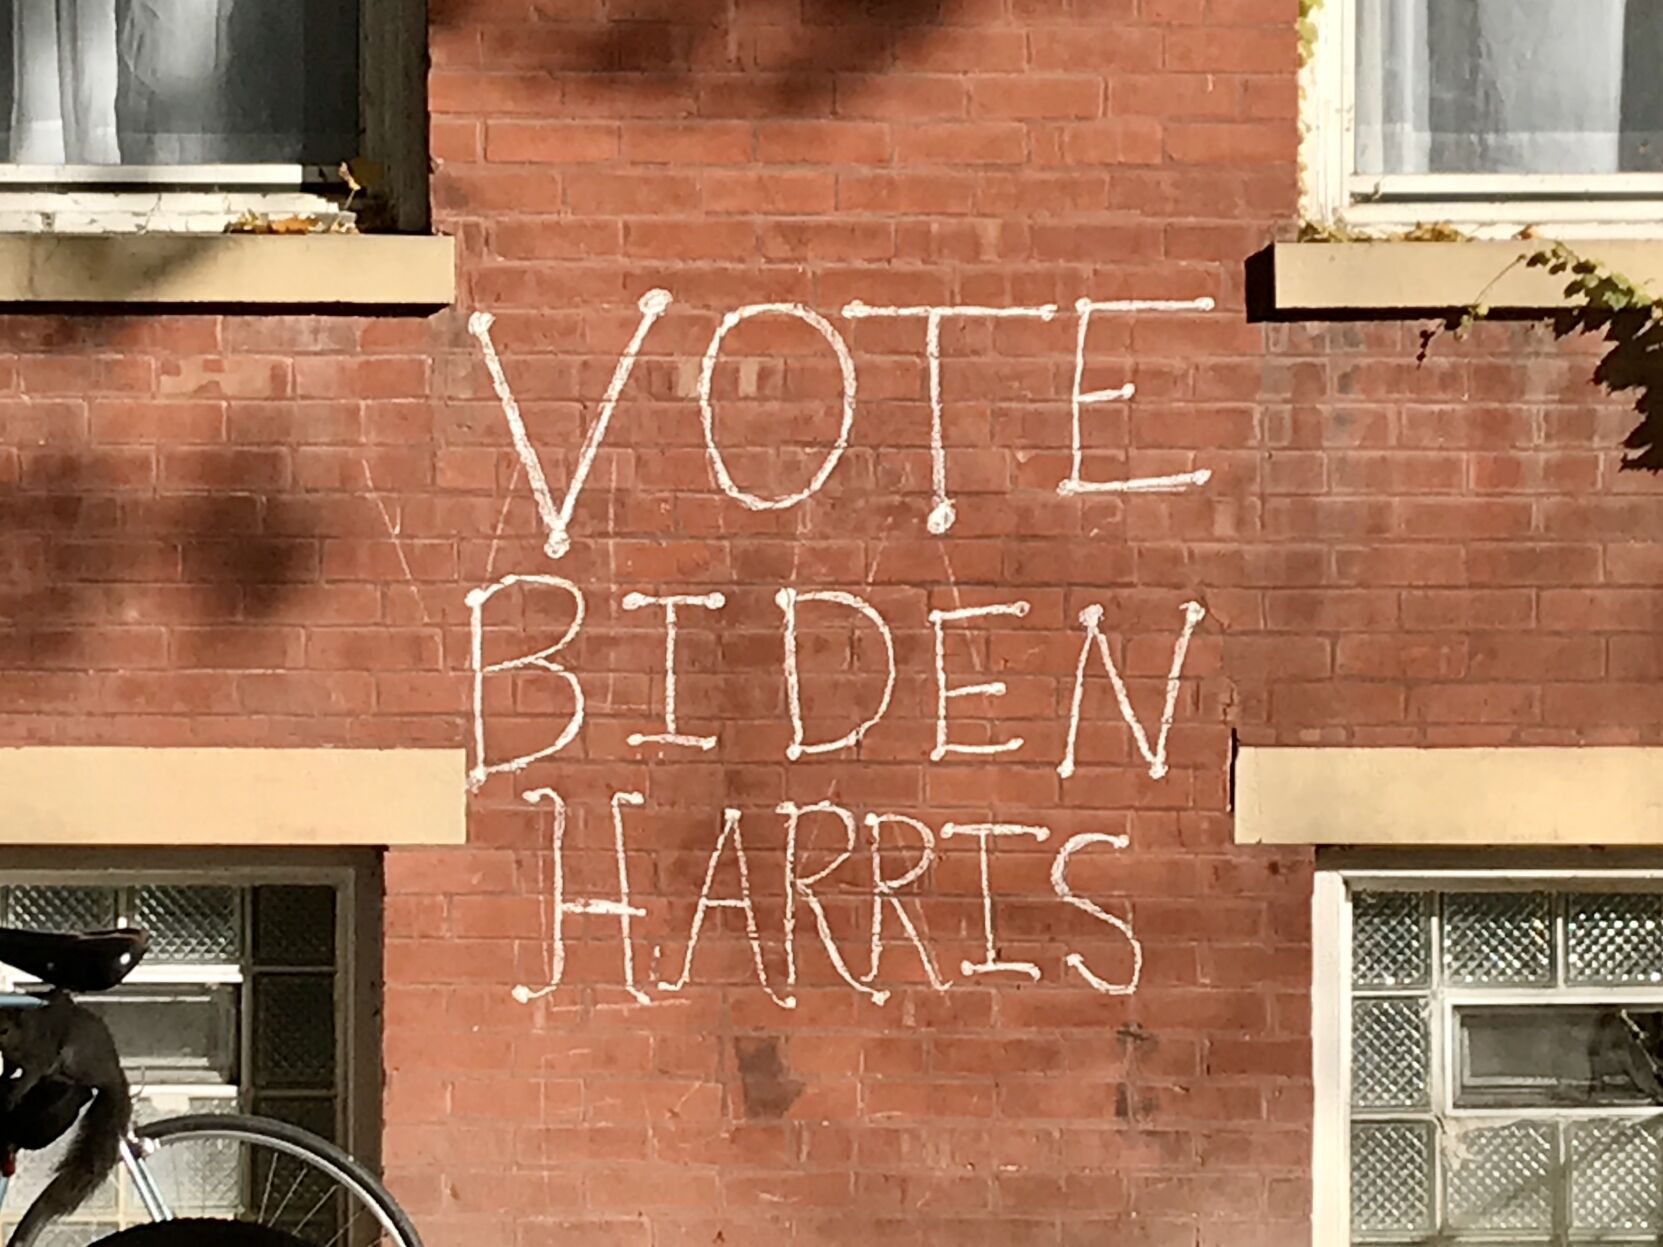 VOTE
BIDEN
HARRIS